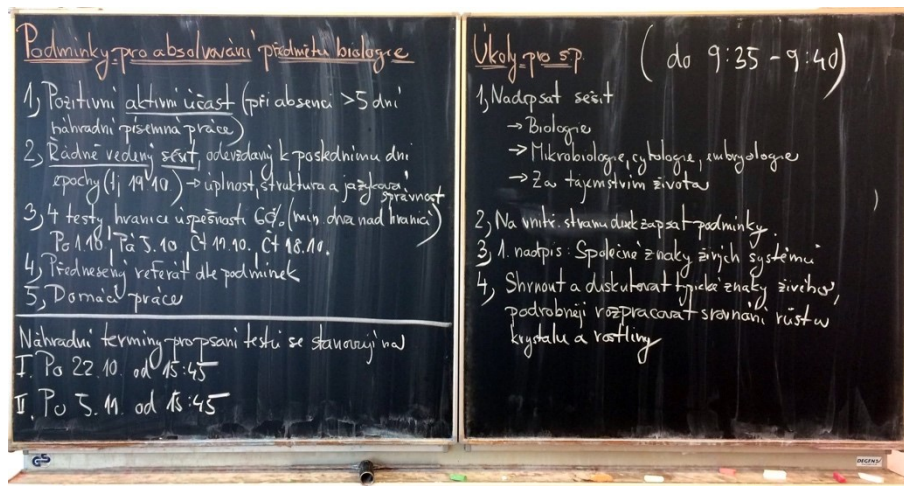 Podmínky pro absolvování předmětu biologie
1, Pozitivní aktivní účast (při absenci >5 dní
náhradní písemná práce)
2, Řádně vedený sešit, odevzdaný k poslednímu dni
epochy (tj 19.10.) → úplnost, struktura a jazyková
správnost
3, 4 testy hranice úspěšnosti 60% (min. dva nad hranicí)
Po 1.10. Pá 5.10. Čt 11.10. Čt 18.10.
4, Přednesený referát dle podmínek
5, Domácí práce
Náhradní termíny pro psaní testů se stanovují na
I. Po 22.10. od 15:45
II. Po 5.11. od 15:45
Úkoly pro s.p.
(do 9:35 - 9:40)
1, Nadepsat sešit
→ Biologie
→ Mikrobiologie, cytologie, embryologie
→ Za tajemstvím života
2, Na vnitř. stranu desk zapsat podmínky.
3, 1. nadpis: Společné znaky živých systémů
4, Shrnout a diskutovat typické znaky živého,
podrobněji rozpracovat srovnání růstu
krystalu a rostliny
GS